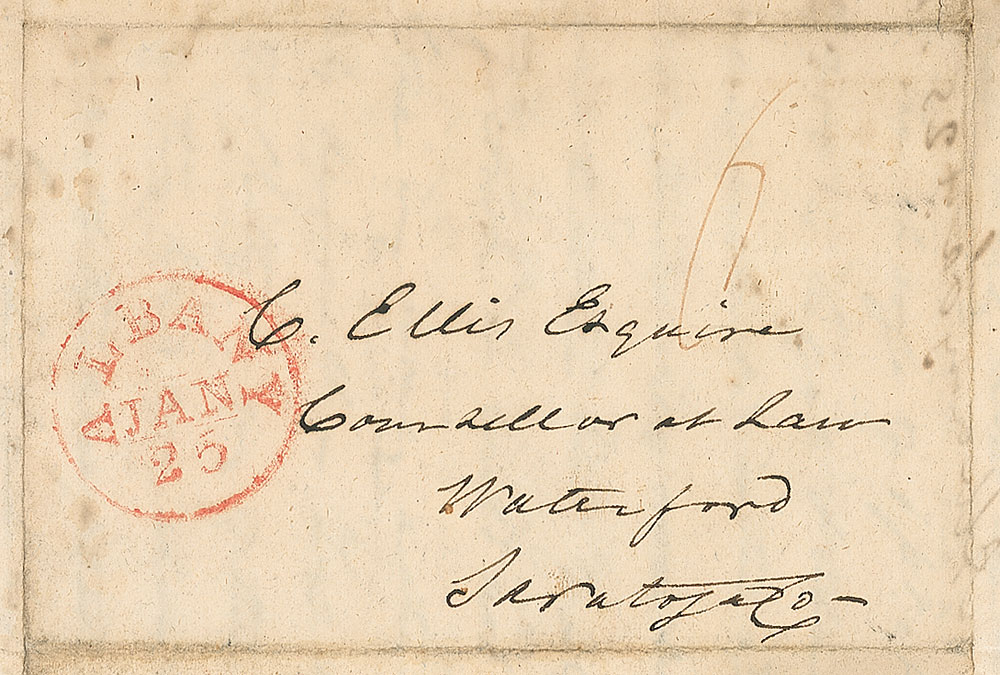 6
ALBANY
JAN
25
C. Ellis Esquire
Counsellor at Law
Waterford
Saratoga Co—